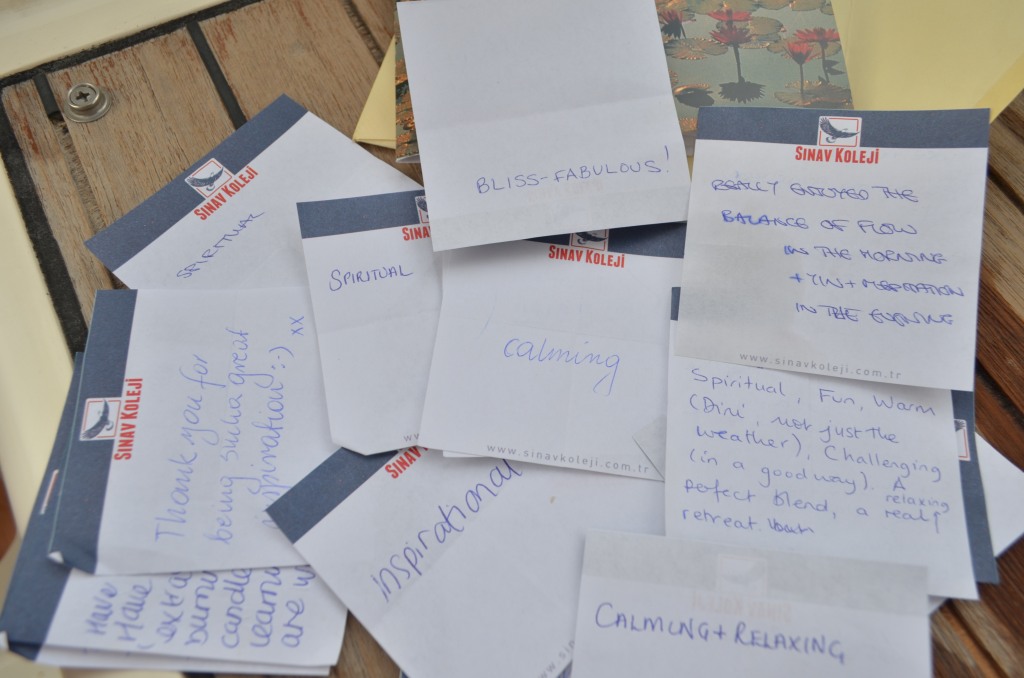 BLISS-FABULOUS!
SINAV KOLEJİ
REALLY ENJOYED THE
BALANCE OF FLOW
IN THE MORNING
+ YIN + MEDITATION
IN THE EVENING
www.sinavkoleji.com.tr
SINAV KOLEJİ
SPIRITUAL
SPIRITUAL
SINAV KOLEJİ
calming
www.sinavkoleji.com.tr
Spiritual, Fun, Warm
(Dini, not just the
weather), Challenging
(in a good way). A
relaxing
perfect blend, a really
retreat.
SINAV KOLEJİ
Thank you for
being such a great
inspiration :-) xx
SINAV KOLEJİ
inspirational
Have
Have
extra
candle
are
CALMING + RELAXING